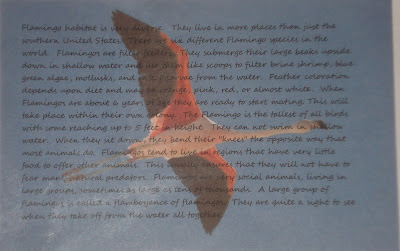 Flamingo habitat is very diverse. They live in more places than just the
southern United States. There are six different Flamingo species in the
world. Flamingos are filter feeders. They submerge their large beaks upside
down in shallow water and use them like scoops to filter brine shrimp, blue
green algae, mollusks, and insect larvae from the water. Feather coloration
depends upon diet and may be orange, pink, red, or almost white. When
Flamingos are about 6 years, they are ready to start mating. This will
take place within their own colony. The flamingo is the tallest of all birds
with some reaching up to 5 feet in height. They can not swim in shallow
water. When they sit down, they bend their "knees" the opposite way that
most animals do. Flamingos tend to live in regions that have very little
food to offer other animals. This usually means that they will not have to
fear many natural predators. Flamingos are very social animals, living in
large groups, sometimes as large as tens of thousands. A large group of
flamingos is called a flamboyance of flamingos. They are quite a sight to see
when they take off from the water all together.